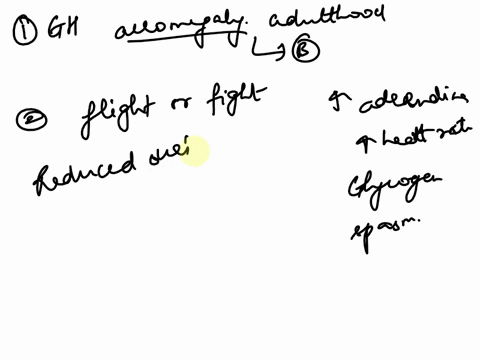 ① GH acromegaly. adulthood
↳ Ⓑ
② flight or fight
Reduced
↑ adrenaline
↑ heart rate
Glycogen
spasm.